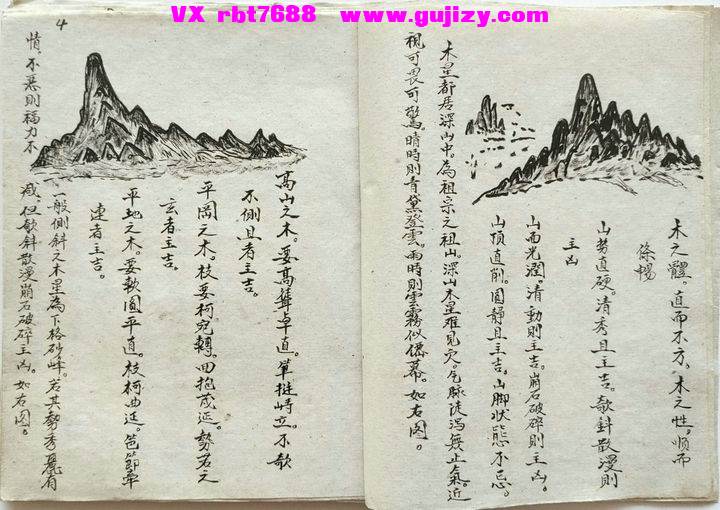 VX rbt7688 www.gujizy.com
木之體。直而不方。木之性。順而
條暢
山势直硬。清秀且主吉。欹斜散漫則
主凶
山面光潤。清動則主吉。崩石破碎則主凶。
山頂直削。圆静且主吉。山脚状態不忌。
木星都居深山中。為祖宗之祖山。深山木星难見穴。气脉徒泻無止氣。近
視可畏可驚。晴時則青黛登雲。雨時則雲霧似僊幕。如右图。
高山之木。要高聳卓直。單挺峙立。不欹
不側且者主吉。
平岡之木。枝要柯宛轉。回抱茂延。勢若之
玄者主吉。
平地之木。要軟圆平直。枝柯曲迋。苞節牵
連者主吉。
一般側斜之木星為下格砂峰。若其勢秀麗有
情、不惡則福力不
减、但欹斜散漫崩石破碎主凶。如右图。
4